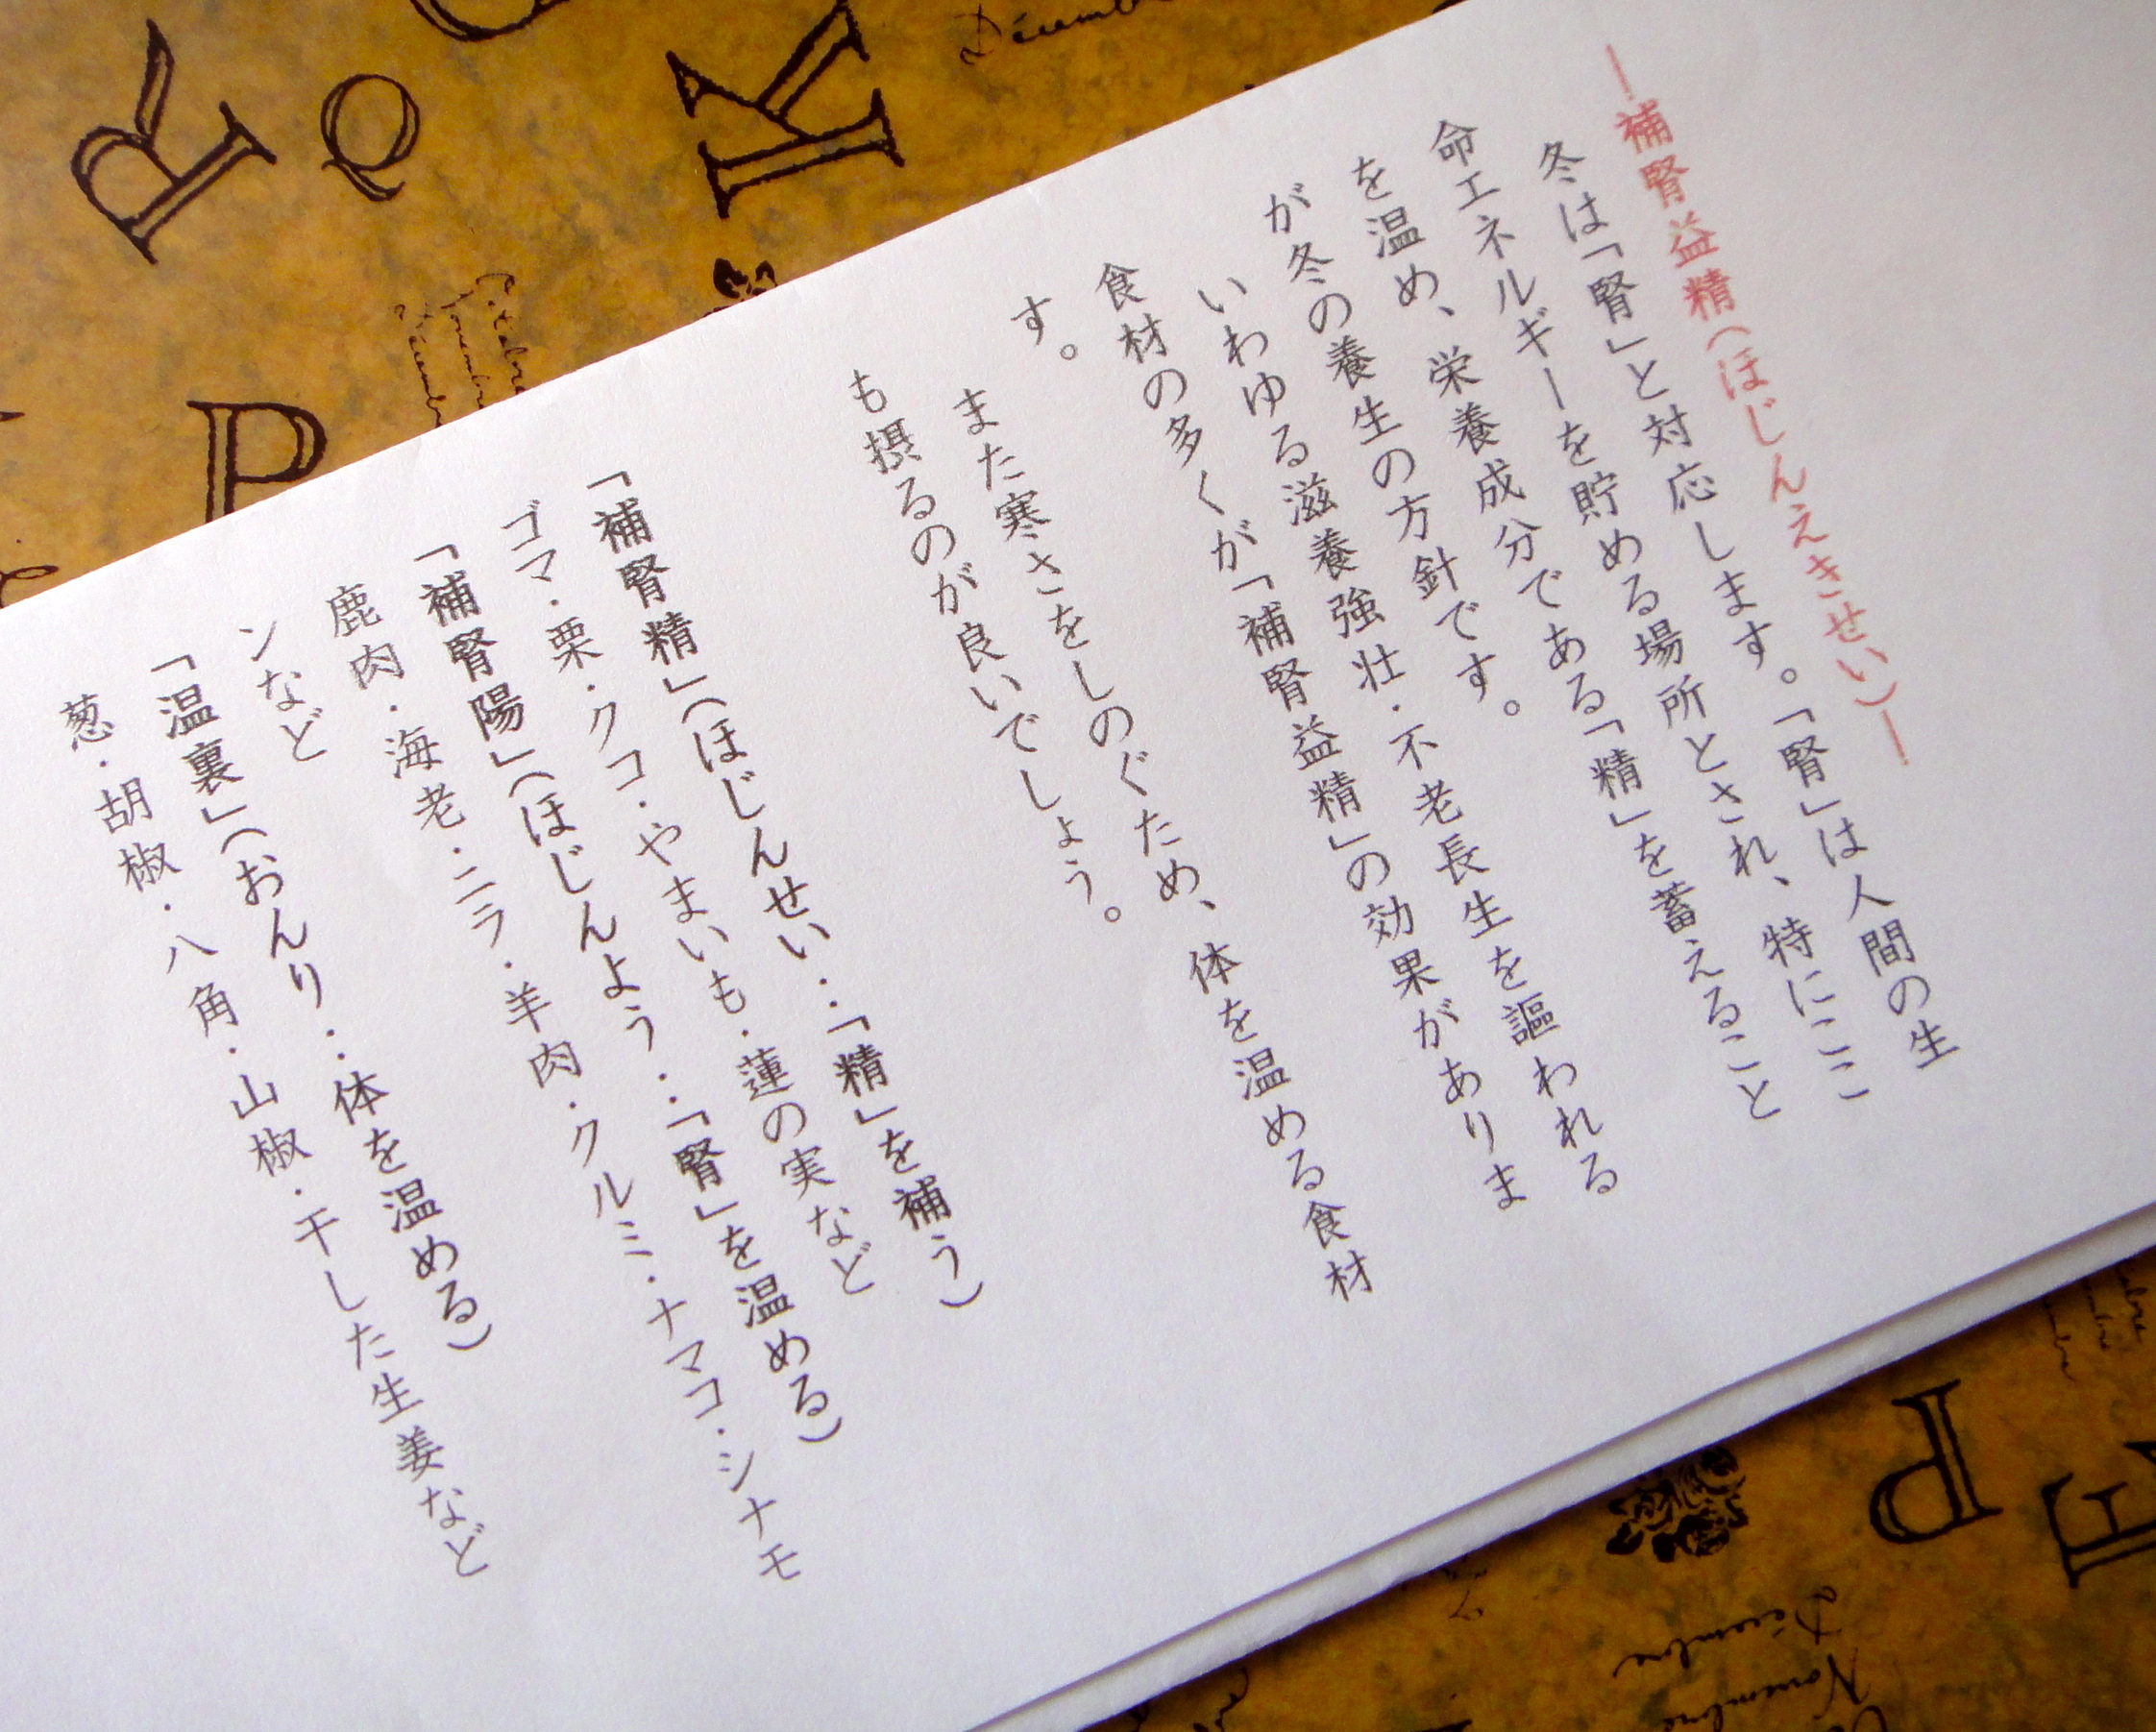 ―補腎益精(ほじんえきせい)―
冬は「腎」と対応します。「腎」は人間の生
命エネルギーを貯める場所とされ、特にここ
を温め、栄養成分である「精」を蓄えること
が冬の養生の方針です。
いわゆる滋養強壮・不老長生を謳われる
食材の多くが「補腎益精」の効果がありま
す。
また寒さをしのぐため、体を温める食材
も摂るのが良いでしょう。
「補腎精」(ほじんせい‥「精」を補う)
ゴマ・栗・クコ・やまいも・蓮の実など
「補腎陽」(ほじんよう‥「腎」を温める)
鹿肉・海老・ニラ・羊肉・クルミ・ナマコ・シナモ
ンなど
「温裏」(おんり‥体を温める)
葱・胡椒・八角・山椒・干した生姜など
R
Q
K
P
Décembre
P
E
Décembre
Novembre